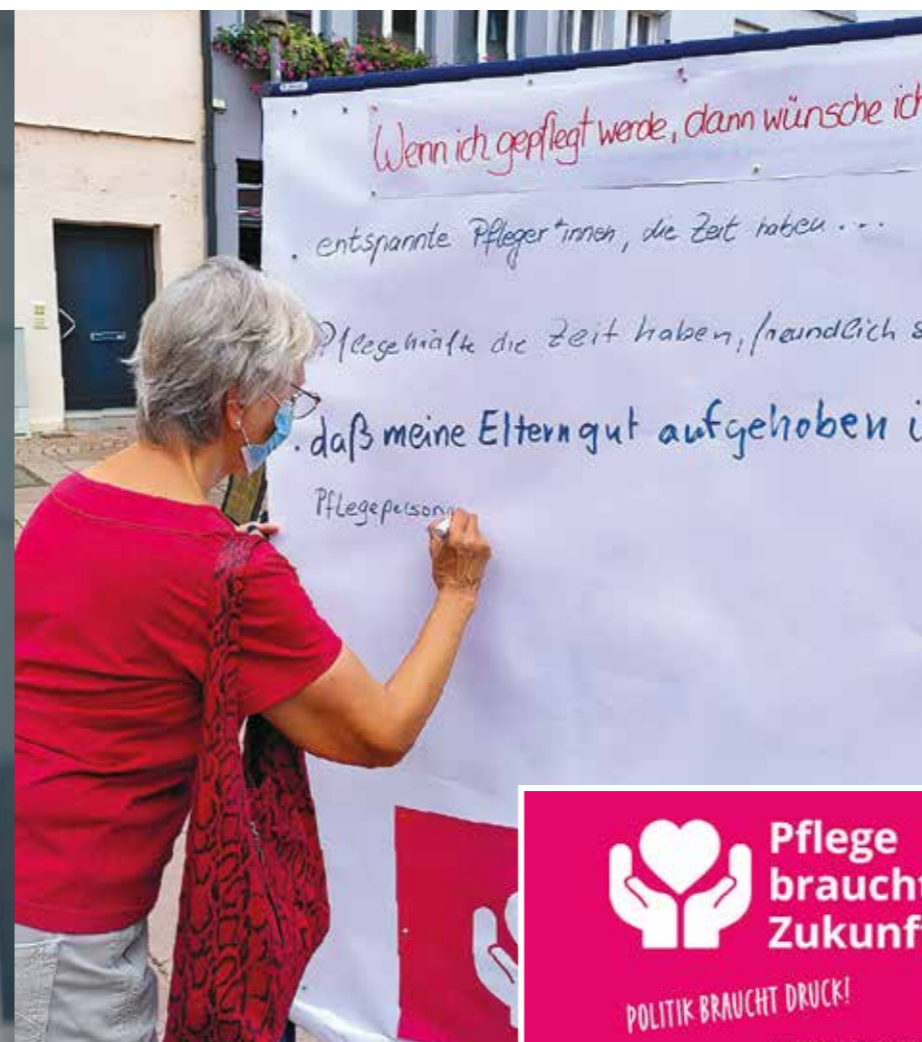 Wenn ich gepflegt werde, dann wünsche ich
entspannte Pfleger*innen, die Zeit haben...
Pflegekräfte die Zeit haben, freundlich s
. daß meine Eltern gut aufgehoben i
Pflegeperson
Pflege
braucht
Zukunft
POLITIK BRAUCHT DRUCK!